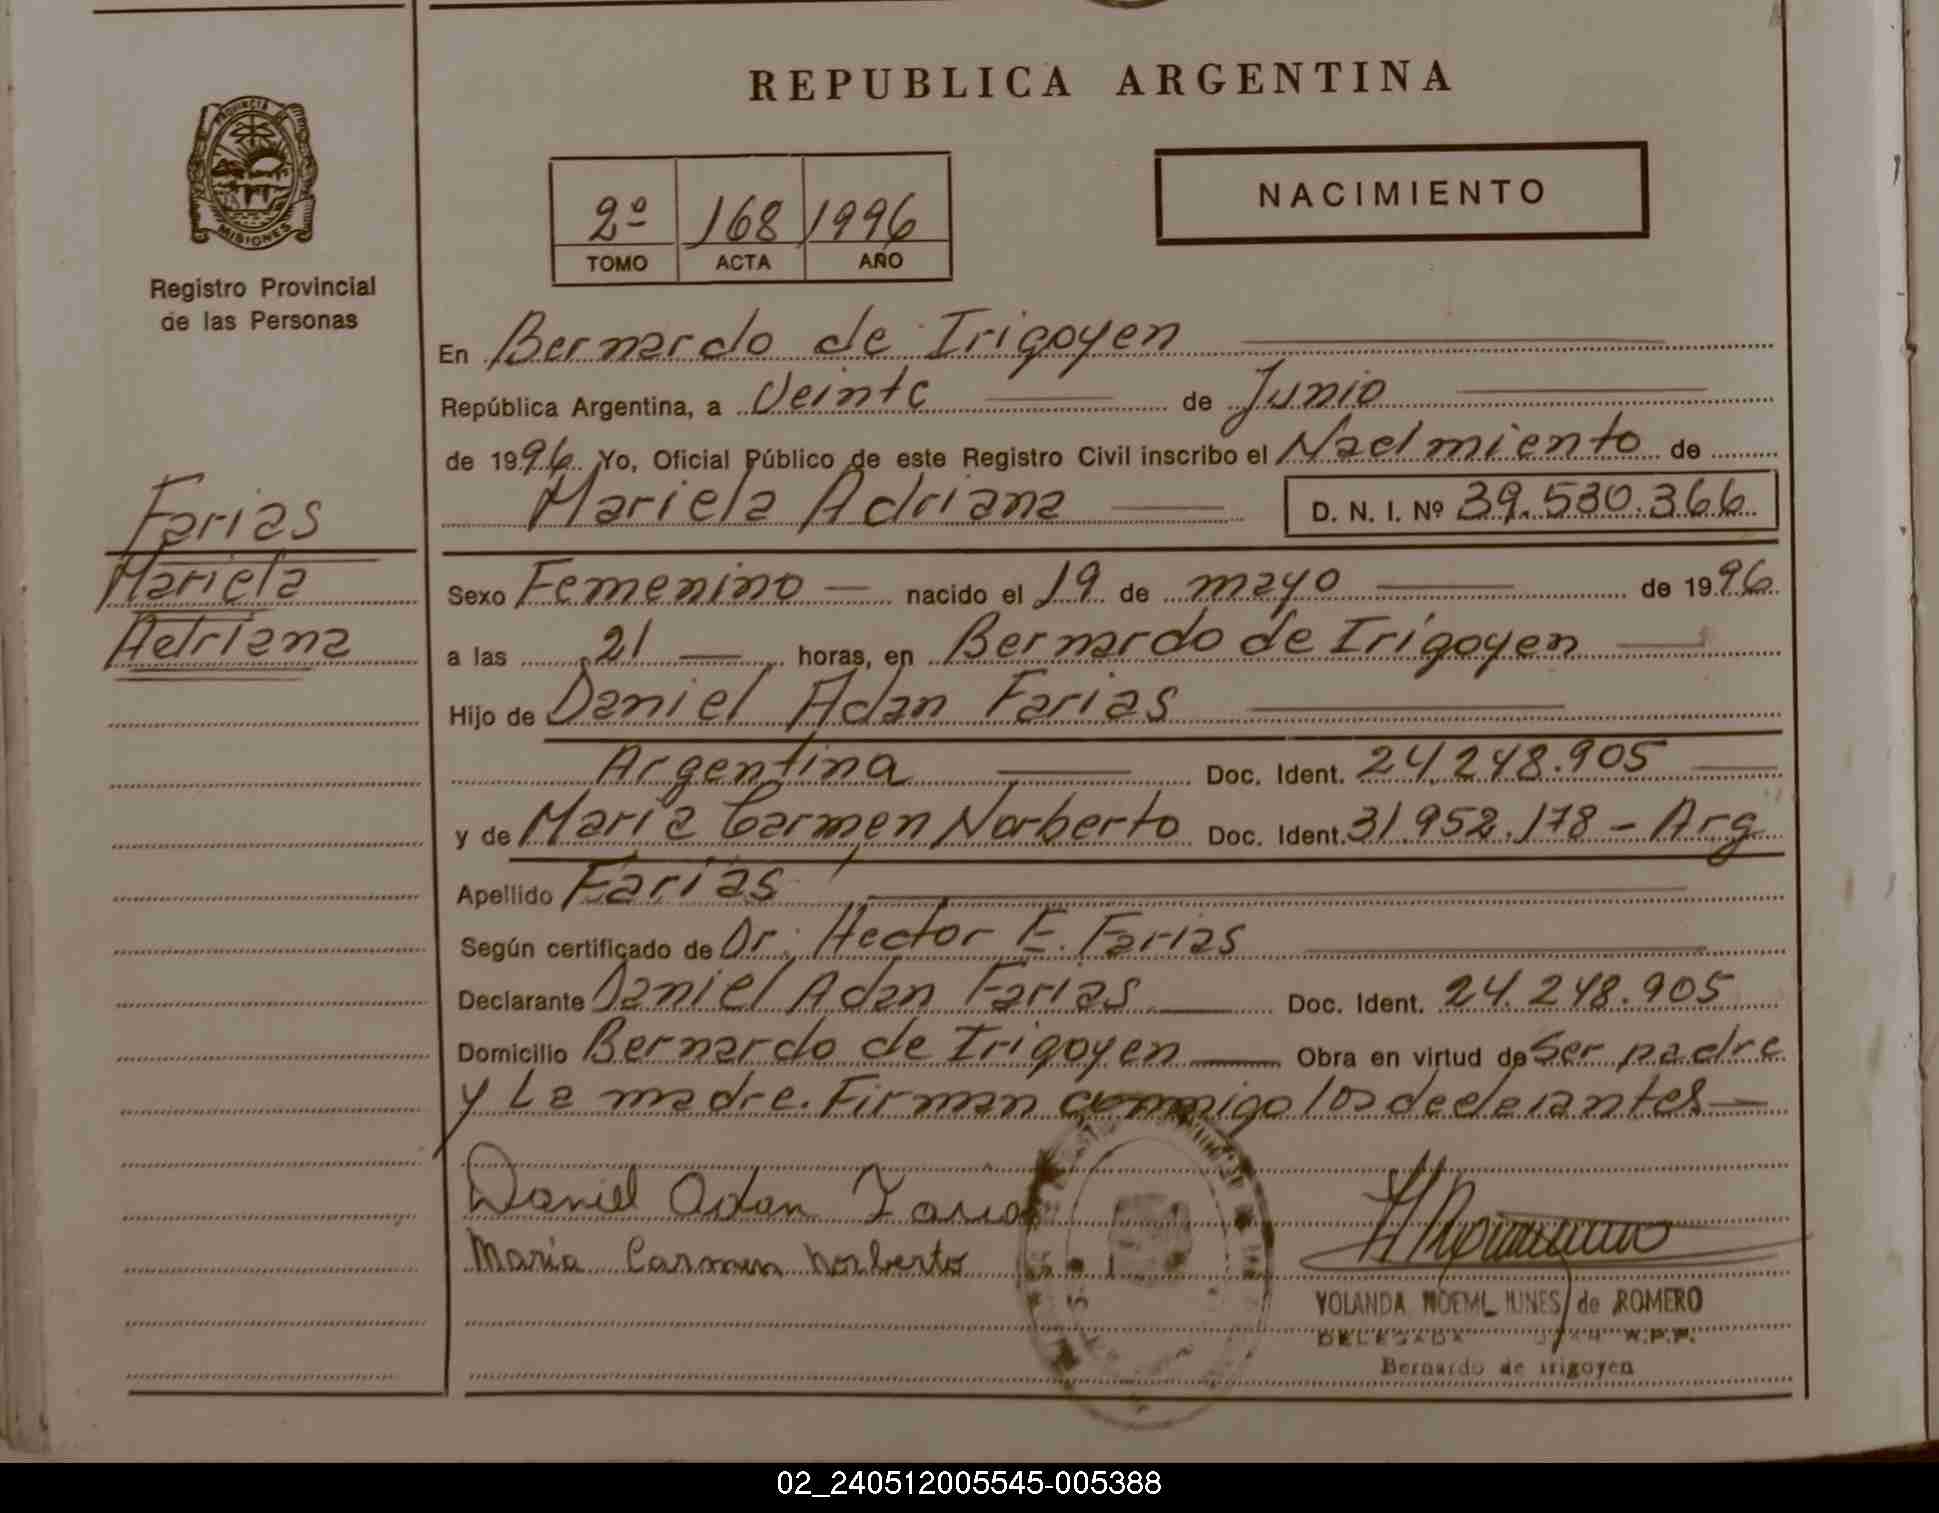 REPUBLICA ARGENTINA
PROVINCIA DE
MISIONES
Registro Provincial
de las Personas
2º 168 1996
TOMO ACTA AÑO
NACIMIENTO
En Bernardo de Irigoyen
República Argentina, a Veinte de Junio
de 1996 Yo, Oficial Público de este Registro Civil inscribo el Nacimiento de
Mariela Adriana D. N. I. Nº 39.530.366
Farias
Mariela
Adriana
Sexo Femenino nacido el 19 de mayo de 1996
a las 21 horas, en Bernardo de Irigoyen
Hijo de Daniel Adan Farias
Argentina Doc. Ident. 24.248.905
y de Maria Carmen Norberto Doc. Ident. 31.952.178 - Arg
Apellido Farias
Según certificado de Dr. Hector E. Farias
Declarante Daniel Adan Farias Doc. Ident. 24.248.905
Domicilio Bernardo de Irigoyen Obra en virtud de Ser padre
y La madre. Firman conmigo los declarantes
Daniel Adan Farias
Maria Carmen Norberto
YOLANDA NOEMI NUNES de ROMERO
DELEGADA R.P.P.
Bernardo de Irigoyen
02_240512005545-005388